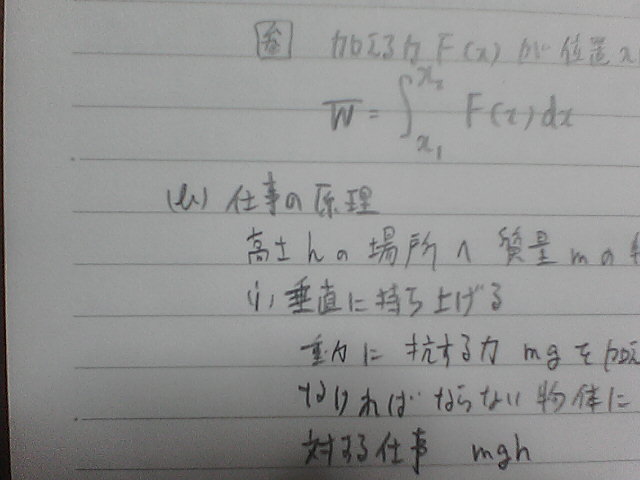 加える力 F(x) が 位置 x
W = ∫_{x₁}^{x₂} F(x) dx
(b) 仕事の原理
高さ h の 場所 へ 質量 m の
(i) 垂直に持ち上げる
重力に 抗する力 mg を 加え
なければ ならない 物体に
対する仕事 mgh